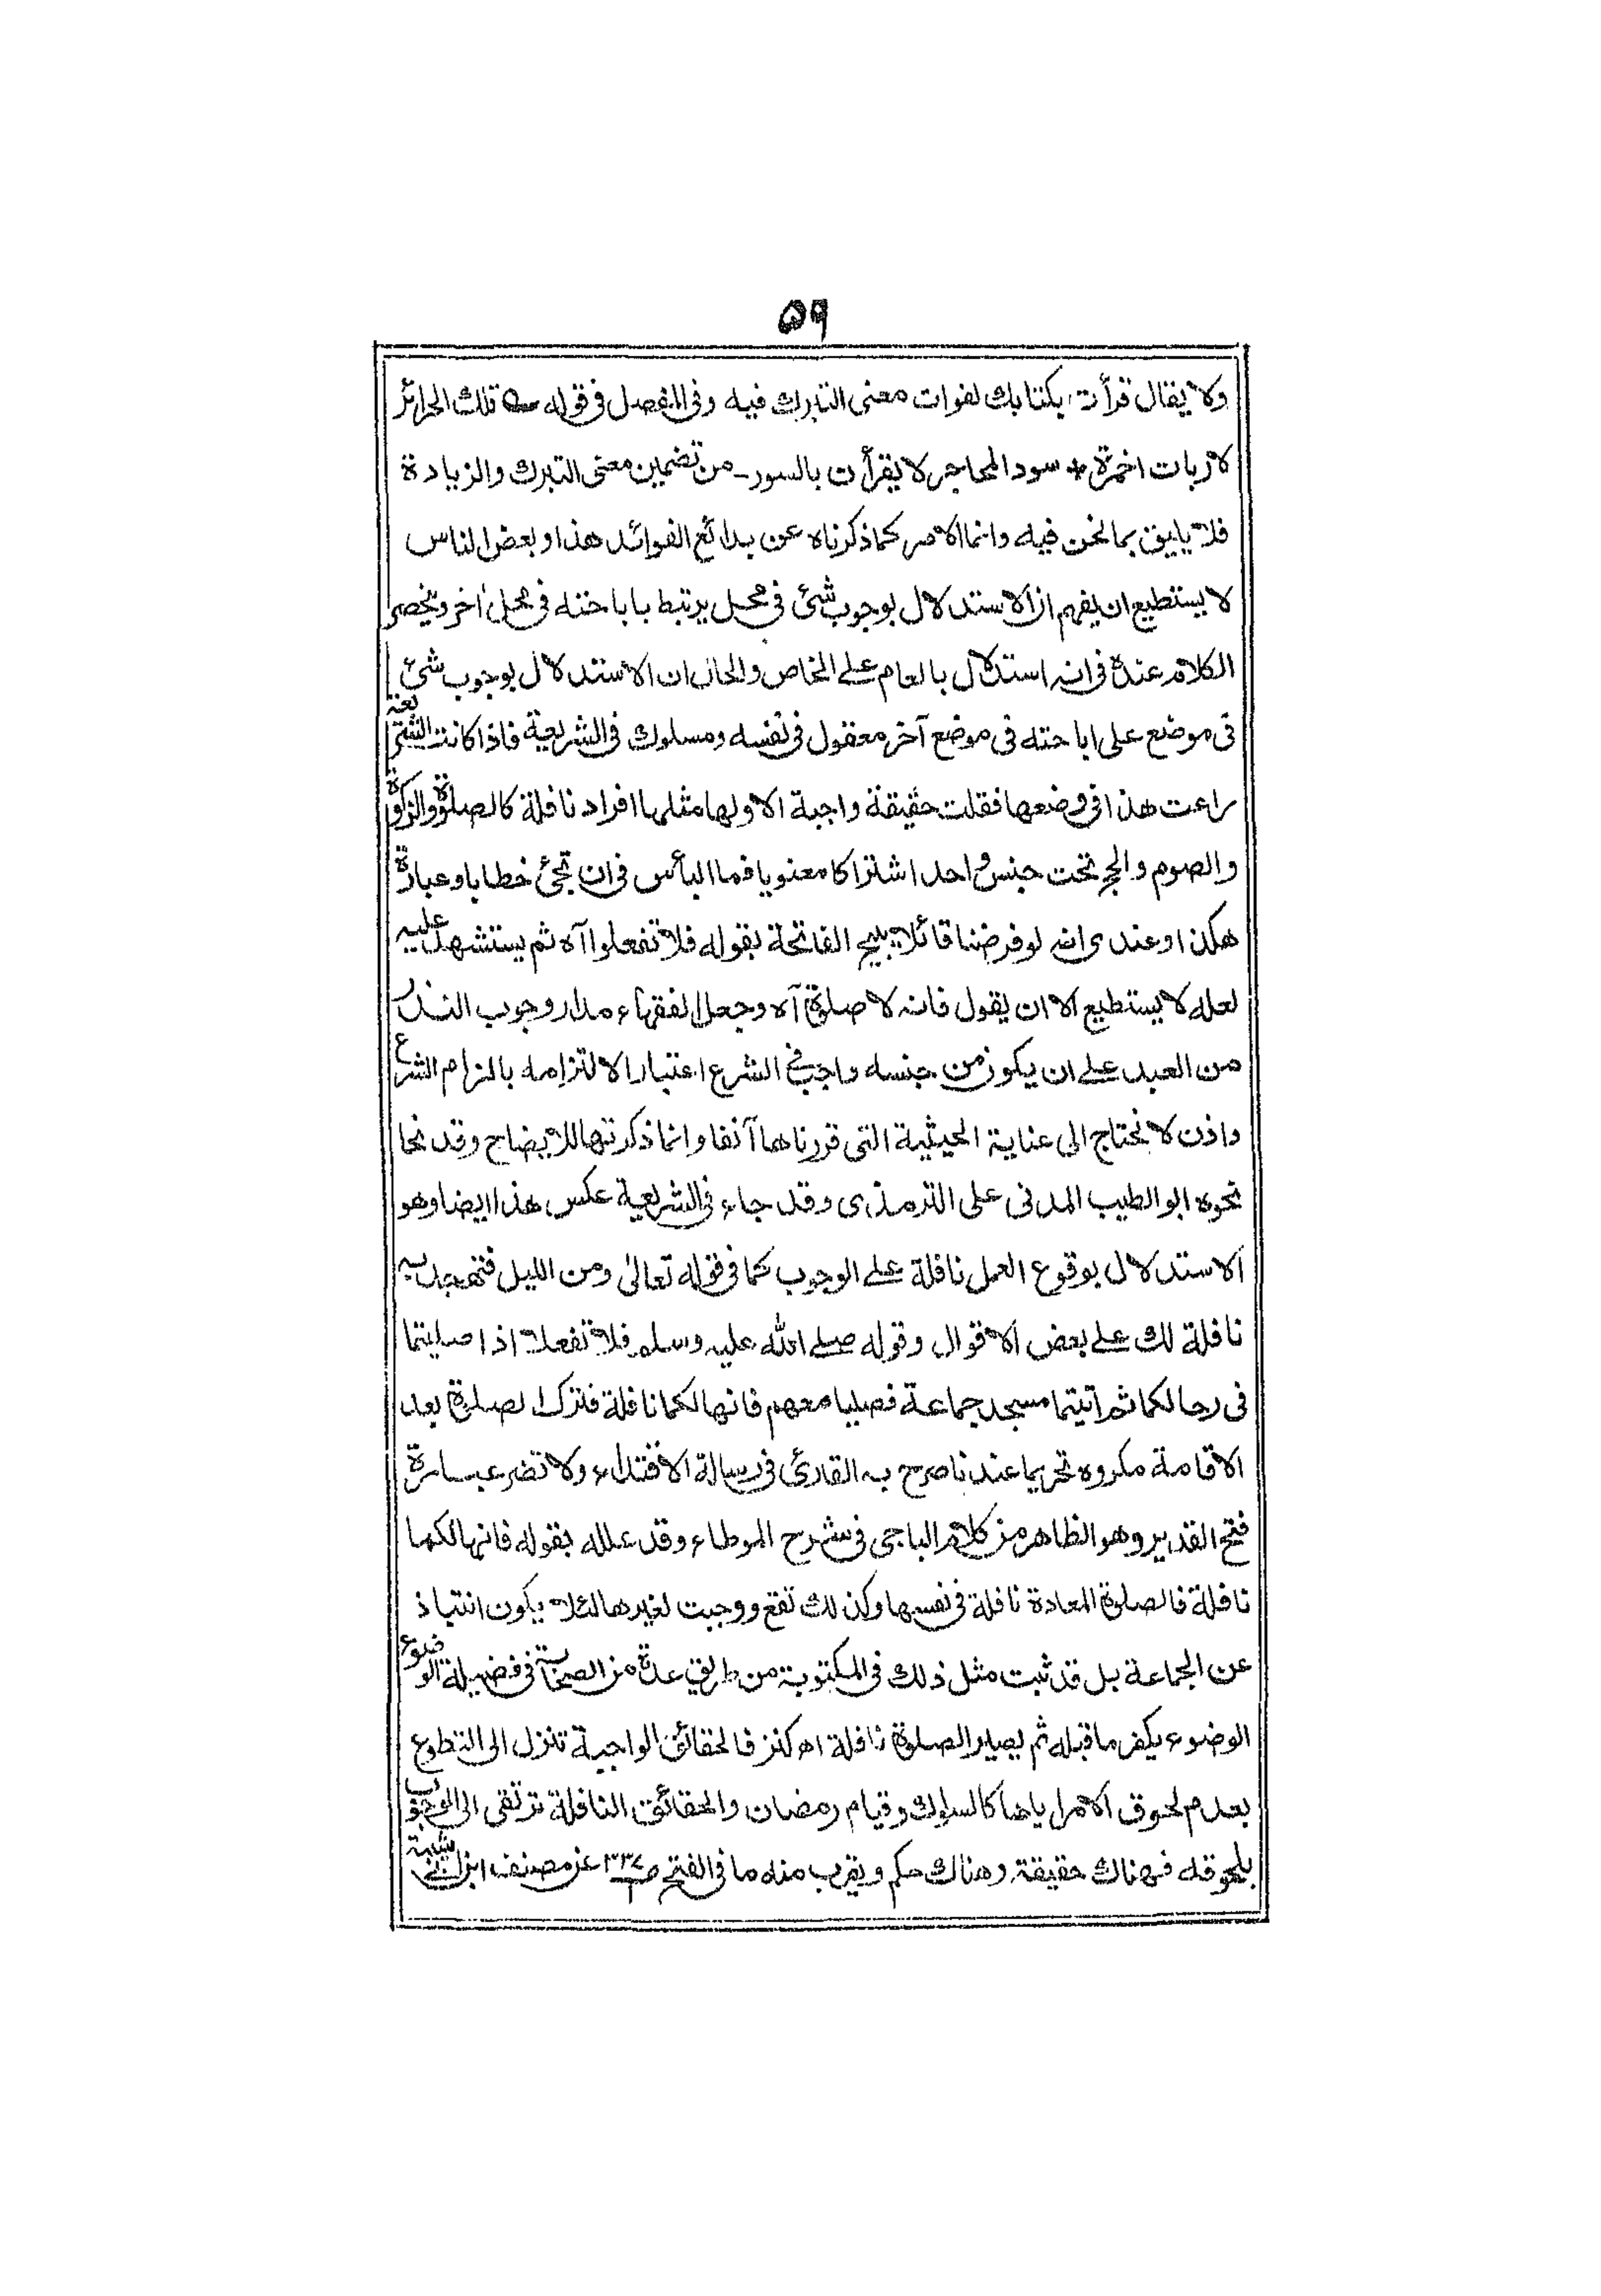 ٥٩
ولا يقال قرأت بكتابك لفوات معنى التبرك فيه وفى المفصل فى قوله ؎ تلك الحرائر
لا ربات اخمرة * سود المحاجر لا يقرأن بالسور ـ من تضمين معنى التبرك والزيادة
فلا يليق بما نحن فيه وانما الامر كما ذكرناه عن بدائع الفوائد هذا وبعض الناس
لا يستطيع ان يفهم ان الاستدلال بوجوب شئ فى محل يرتبط باباحته فى محل اخر وينحصر
الكلام عنده فى انه استدلال بالعام على الخاص والحال ان الاستدلال بوجوب شئ
فى موضع على اباحته فى موضع آخر معقول فى نفسه ومسلوك فى الشريعة فاذا كانت الشريعة
راعت هذا فى وضعها فقلت حقيقة واجبة الا ولها مثلها افراد نافلة كالصلوة والزكوة
والصوم والحج تحت جنس واحد اشتراكا معنويا فما البأس فى ان تجئ خطابا وعبارة
هكذا وعندى انه لو فرضنا قائلا يبيح الفاتحة بقوله فلا تفعلوا آه ثم يستشهد عليه
لعله لا يستطيع الا ان يقول فانه لا صلوة آه وجعل الفقهاء مدار وجوب النذر
من العبد على ان يكون من جنسه واجب فى الشرع اعتبارا لالتزامه بالزام الشرع
واذن لا نحتاج الى عناية الحيثية التى قررناها آنفا وانما ذكرتها للايضاح وقد نحا
نحوه ابو الطيب المدنى على الترمذى وقد جاء فى الشريعة عكس هذا ايضا وهو
الاستدلال بوقوع العمل نافلة على الوجوب كما فى قوله تعالى ومن الليل فتهجد به
نافلة لك على بعض الاقوال وقوله صلى الله عليه وسلم فلا تفعلا اذا صليتما
فى رحالكما ثم اتيتما مسجد جماعة فصليا معهم فانها لكما نافلة فترك الصلوة بعد
الاقامة مكروه تحريما عندنا صرح به القارئ فى رسالة الاقتداء ولا تضر عبارة
فتح القدير وهو الظاهر من كلام الباجى فى شرح الموطاء وقد علله بقوله فانها لكما
نافلة فالصلوة المعادة نافلة فى نفسها وكذلك تقع ووجبت لغيرها لئلا يكون انتباذ
عن الجماعة بل قد ثبت مثل ذلك فى المكتوبة من طريق عدة من الصحابة فى فضيلة الوضوء
الوضوء يكفر ما قبله ثم يصير الصلوة نافلة اه كنز فالحقائق الواجبة تنزل الى التطوع
بعدم لحوق الامر اياها كالسواك وقيام رمضان والحقائق النافلة ترتقى الى الوجوب
بلحوقه فهناك حقيقة وهناك حكم ويقرب منه ما فى الفتح عن مصنف ابن ابى شيبة